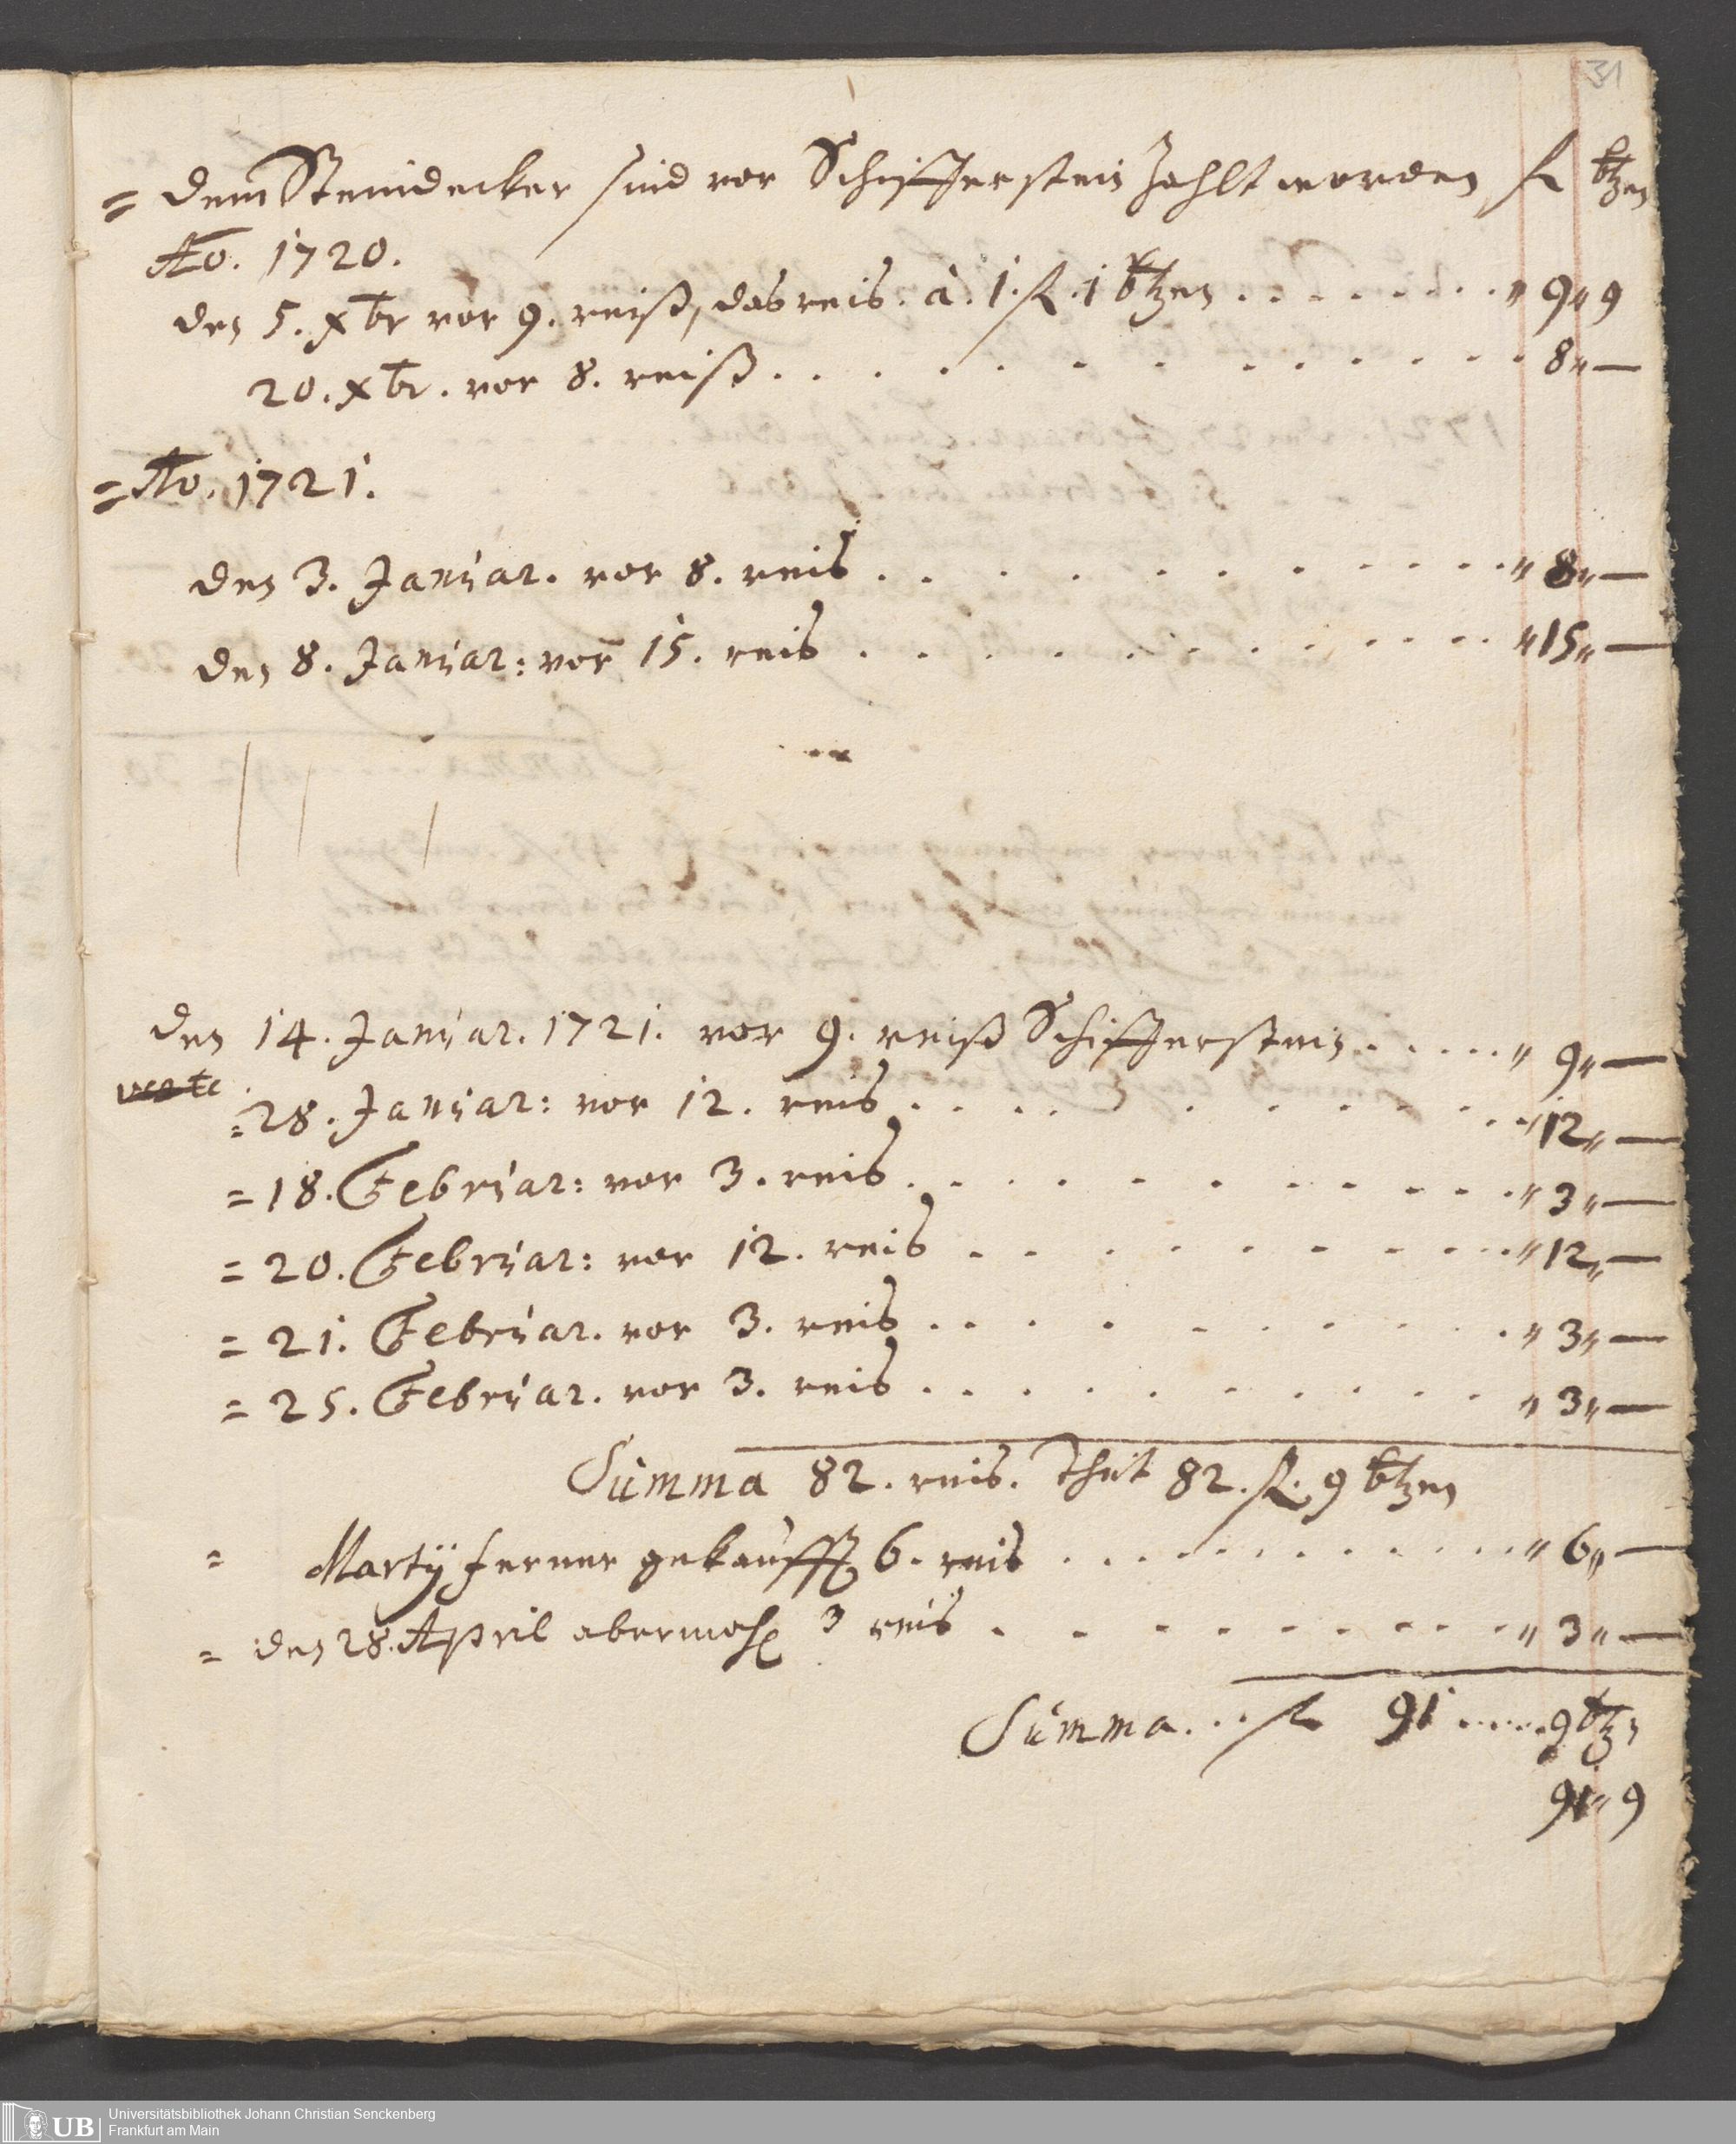 31
= dem Steindecker sind vor Schifferstein zahlt worden fl btzen
Ao. 1720.
den 5. Xbr vor 9. reiß, das reis. à. 1. fl. 1 btzen . . . . . . . . . " 9 " 9
20. Xbr. vor 8. reiß . . . . . . . . . . . . . 8 " —
= Ao. 1721.
den 3. Januar. vor 8. reis . . . . . . . . . . . . " 8 " —
den 8. Januar: vor 15. reis . . . . . . . . . . . . " 15 " —
den 14. Januar. 1721. vor 9. reiß Schifferstein . . . . . . " 9 " —
verte
= 28. Januar: vor 12. reis . . . . . . . . . . . . " 12 " —
= 18. Februar: vor 3. reis . . . . . . . . . . . . " 3 " —
= 20. Februar: vor 12. reis . . . . . . . . . . . " 12 " —
= 21. Februar. vor 3. reis . . . . . . . . . . . " 3 " —
= 25. Februar. vor 3. reis . . . . . . . . . . . " 3 " —
Summa 82. reis. Thut 82. fl. 9 btzen
= Martij ferner gekaufft 6. reis . . . . . . . . . . . . " 6 " —
= den 28. April abermahl 3 reis . . . . . . . . . . " 3 " —
Summa . . . fl 91 . . . . . 9 btzn
91 " 9
UB Universitätsbibliothek Johann Christian Senckenberg
Frankfurt am Main